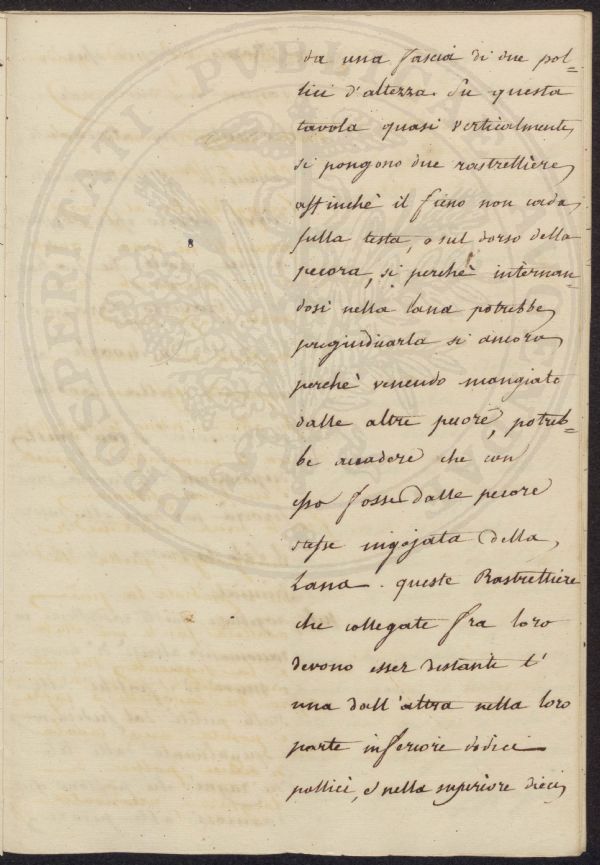 da una fascia di due pol=
lici d'altezza. Su questa
tavola quasi verticalmente
si pongono due rastrettière
affinchè il fieno non cada
sulla testa, o sul dorso della
pecora, si perchè internan=
dosi nella lana potrebbe
pregiudicarla si ancora
perchè venendo mangiato
dalle altre pecore, potreb=
be accadere che con
esso fosse dalle pecore
stesse ingojata della
Lana. queste Rastrettiere
che collegate fra loro
devono esser distanti l'
una dall'altra nella loro
parte inferiore dodici
pollici, e nella superiore dieci
PROSPERITATI PUBLICAE